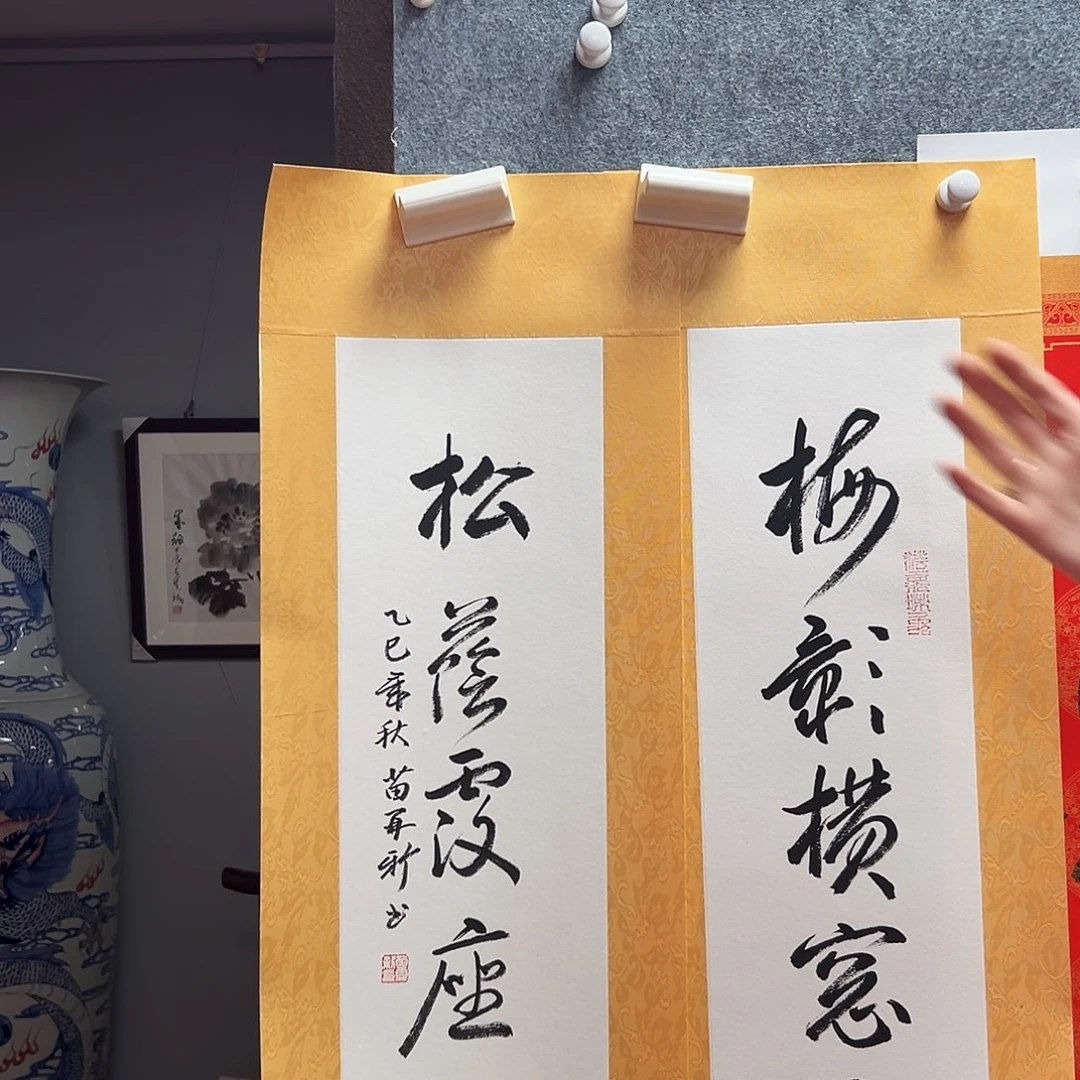 梅影横窓
松蔭覆座
乙巳年秋 苗再新书